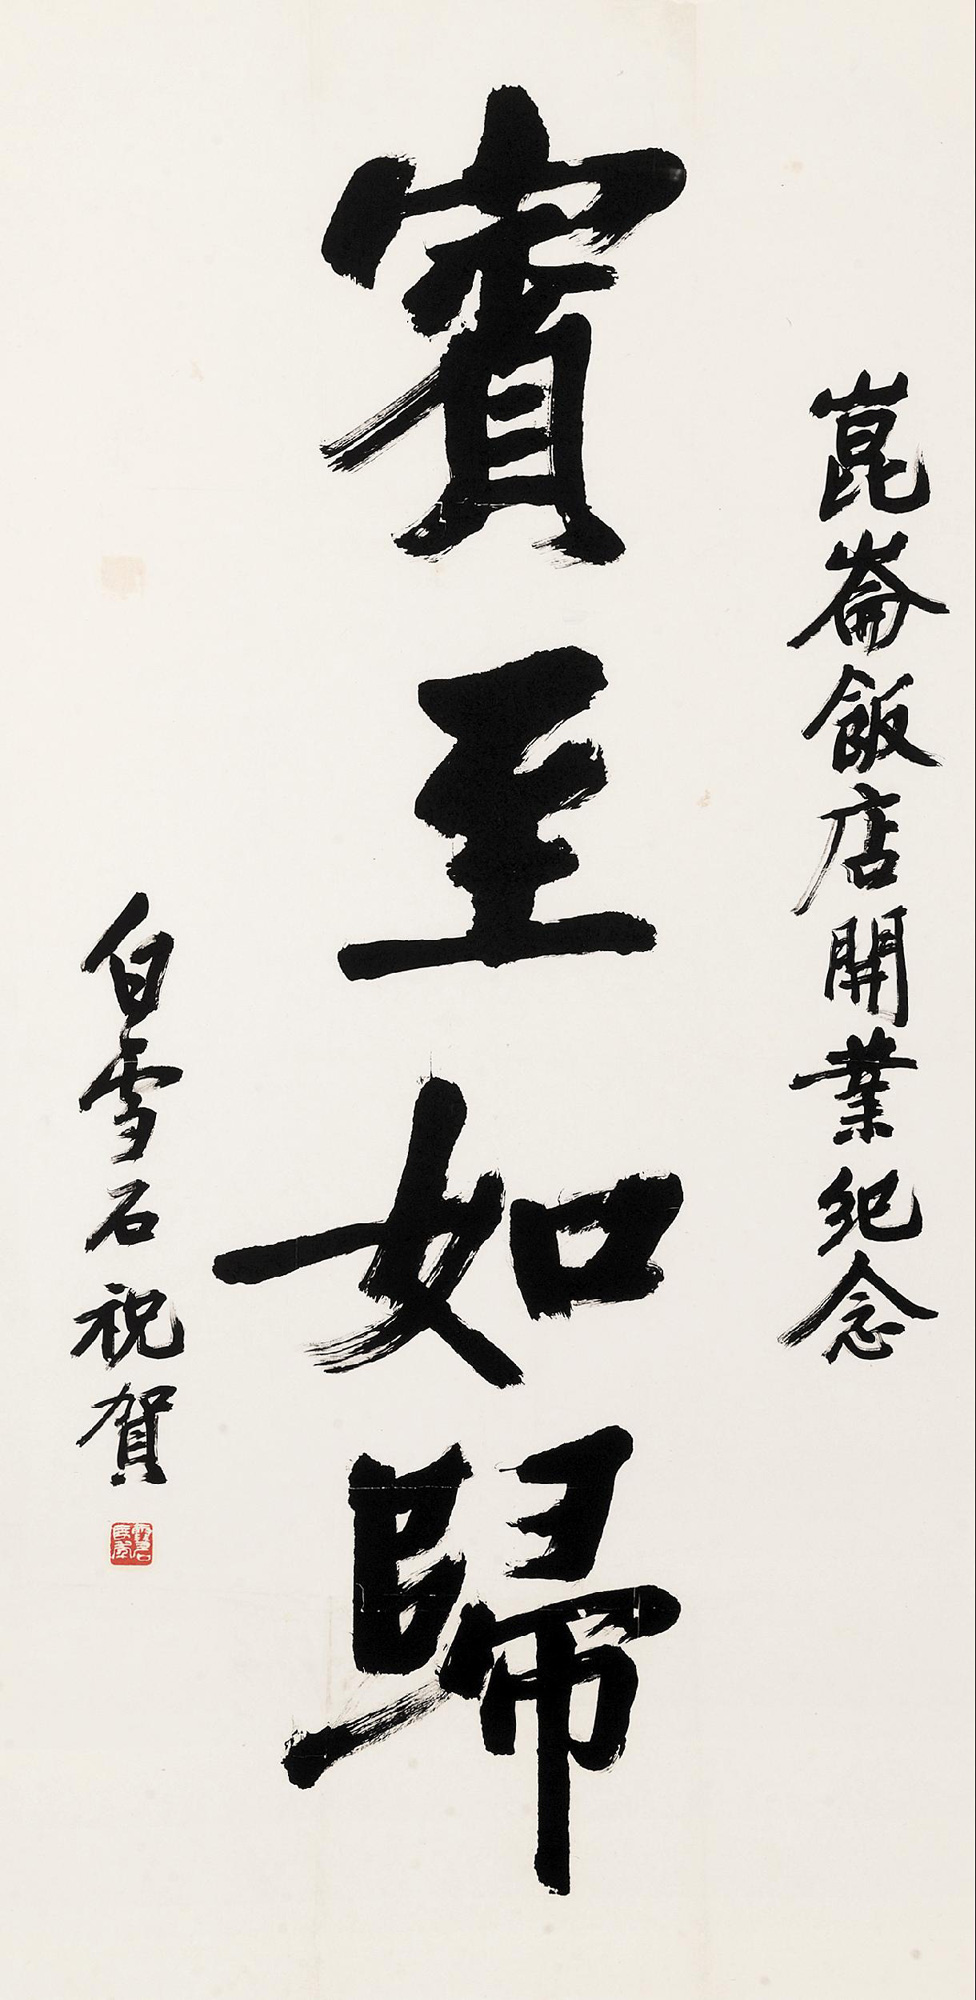 崑崙飯店開業紀念
賓至如歸
白雪石祝賀